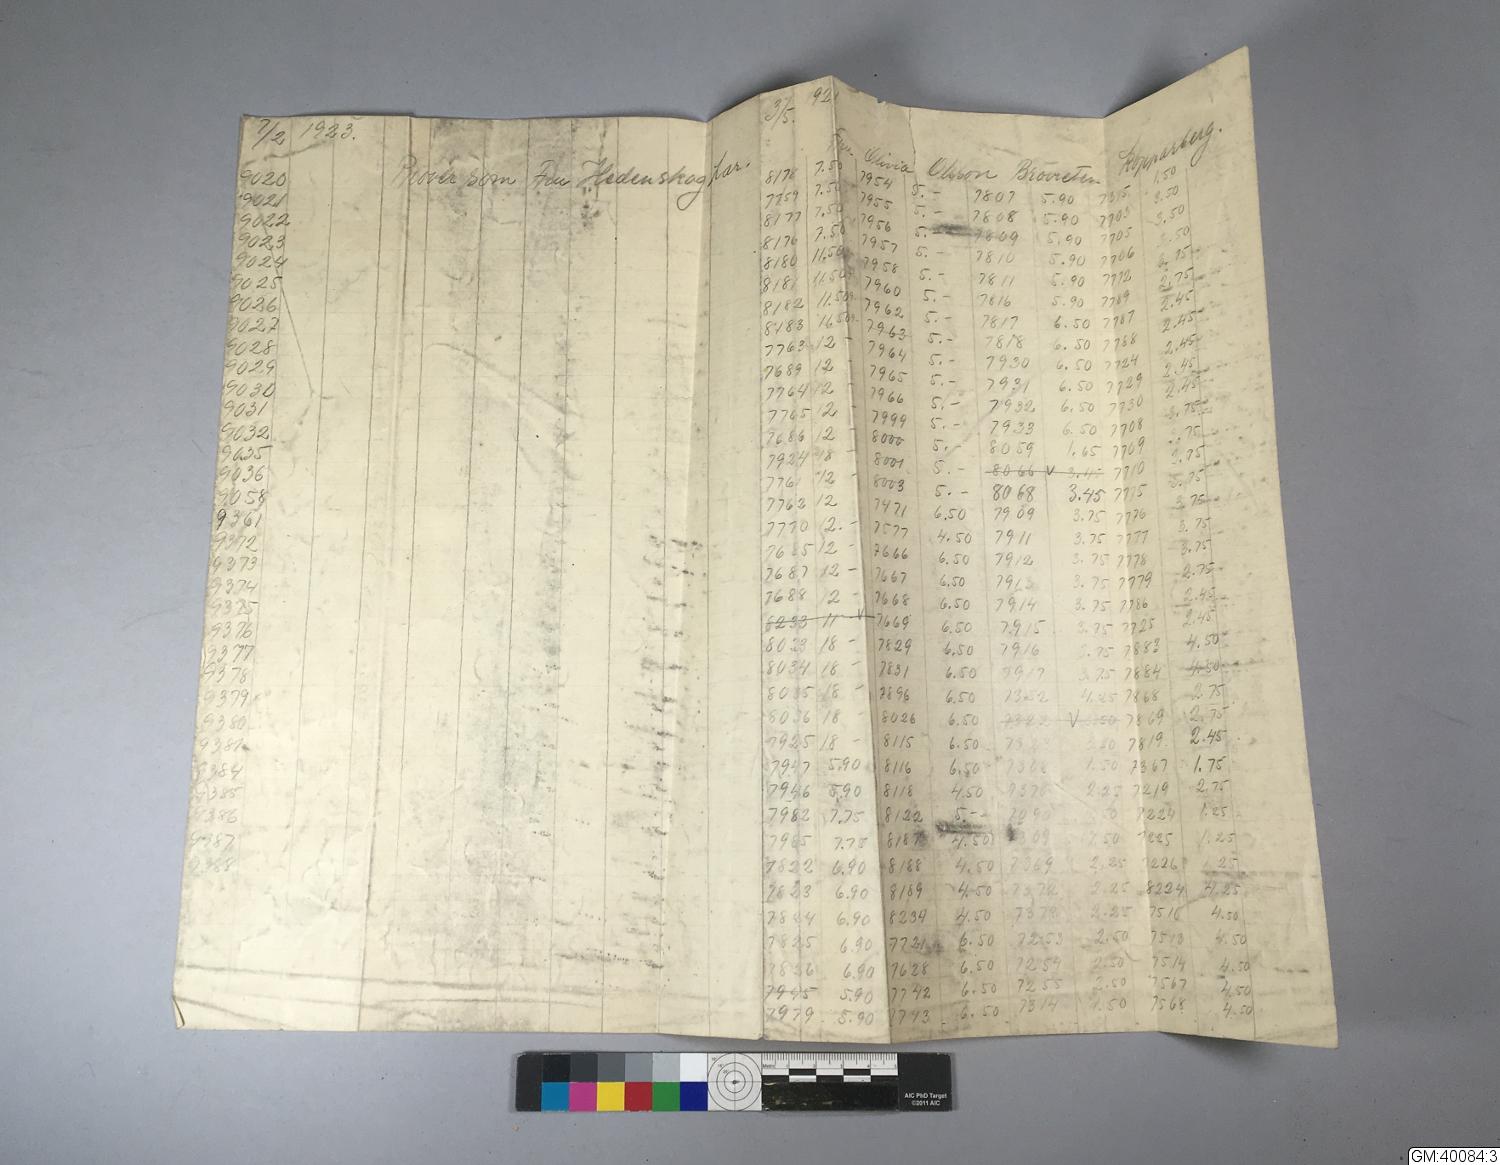 7/2 1923.
Prover som Fru Hedenskog har.
9020
9021
9022
9023
9024
9025
9026
9027
9028
9029
9030
9031
9032
9035
9036
9058
9361
9372
9373
9374
9375
9376
9377
9378
9379
9380
9381
9384
9385
9386
9387
9388
3/5. 1921
Fru Olivia Olsson Kopparberg.
8178 7.50 7954 5.- 7807 5.90 1.50
7759 7.50 7955 5.- 7808 5.90 7703 3.50
8177 7.50 7956 5.- 7809 5.90 7705 3.50
8176 7.50 7957 5.- 7810 5.90 7706 3.50
8180 11.50 7958 5.- 7811 5.90 7772
8181 11.50 7960 5.- 7816 5.90 2.75
8182 11.50 7962 5.- 7817 6.50 7787 2.45
8183 7963 5.- 7818 6.50 7788 2.45
7763 12 - 7964 5.- 7930 6.50 7724 2.45
7689 12 - 7965 5.- 7931 6.50 7729 2.45
7764 12 - 7966 5.- 7932 6.50 7730 2.45
7765 12 - 7999 5.- 7933 6.50 7708 3.75
7686 12 - 8000 5.- 8059 1.65 7709 3.75
7924 18 - 8001 5.- 8066 V 3.45 7710 3.75
7761 12 - 8003 5.- 8068 3.45 7715 3.75
7762 12 7471 6.50 7909 3.75 7776 3.75
7770 12.- 7577 4.50 7911 3.75 7777 3.75
7685 12 - 7666 6.50 7912 3.75 7778 3.75
7687 12 - 7667 6.50 7913 3.75 7779 2.75
7688 12 - 7668 6.50 7914 3.75 7786 2.45
6233 11 - V 7669 6.50 7915 3.75 7725 2.45
8023 18 - 7829 6.50 7916 3.75 7883 4.50
8034 18 - 7831 6.50 7917 3.75 7884 4.50
8035 18 - 7896 6.50 7352 4.25 7868 2.75
8036 18 - 8026 6.50 V 7869 2.75
7925 18 - 8115 6.50 7819 2.45
7947 5.90 8116 6.50 1.50 7367 1.75
7946 5.90 8118 4.50 2.25 7219 2.75
7982 7.75 8122 5.-- 7224 1.25
7985 7.75 8187 4.50 7225 1.25
7822 6.90 8188 4.50 7369 2.25 7226 1.25
7823 6.90 8189 4.50 7372 2.25 8224 4.25
7824 6.90 8234 4.50 7373 2.25 7516 4.50
7825 6.90 7721 6.50 7253 2.50 7513 4.50
7826 6.90 7628 6.50 7254 2.50 7514 4.50
7945 5.90 7742 6.50 7255 2.50 7567 4.50
7979 5.90 1743 6.50 7314 1.50 7568 4.50
AIC PhD Target
©2011 AIC
GM:40084:3